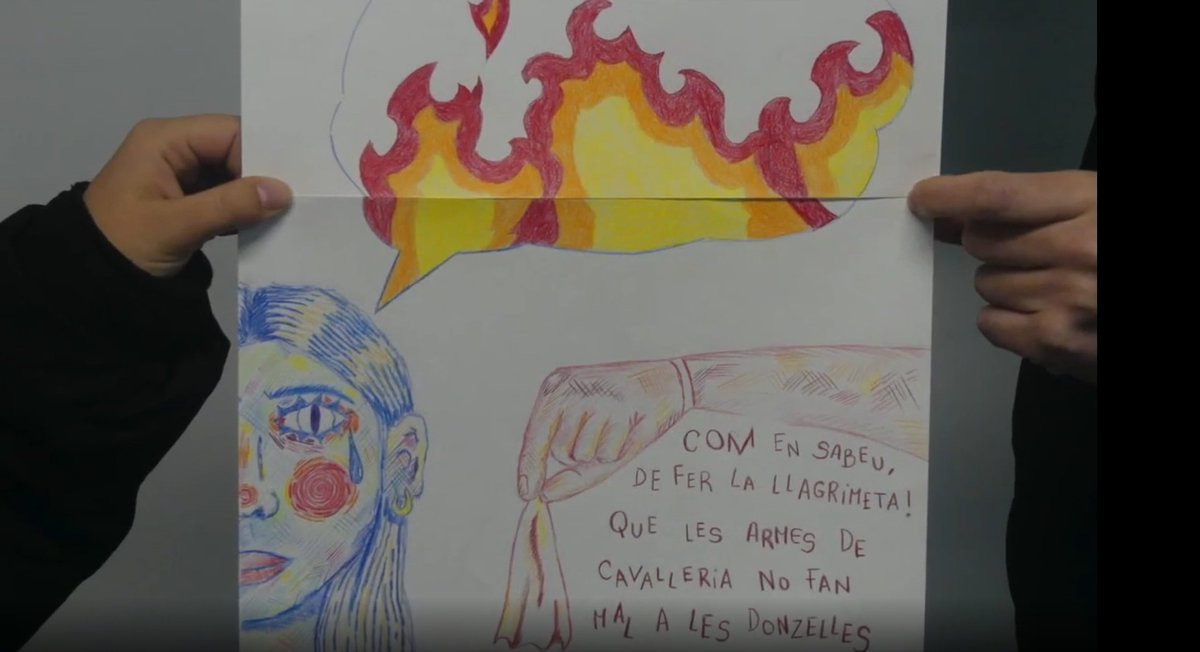 COM EN SABEU,
DE FER LA LLAGRIMETA!
QUE LES ARMES DE
CAVALLERIA NO FAN
MAL A LES DONZELLES